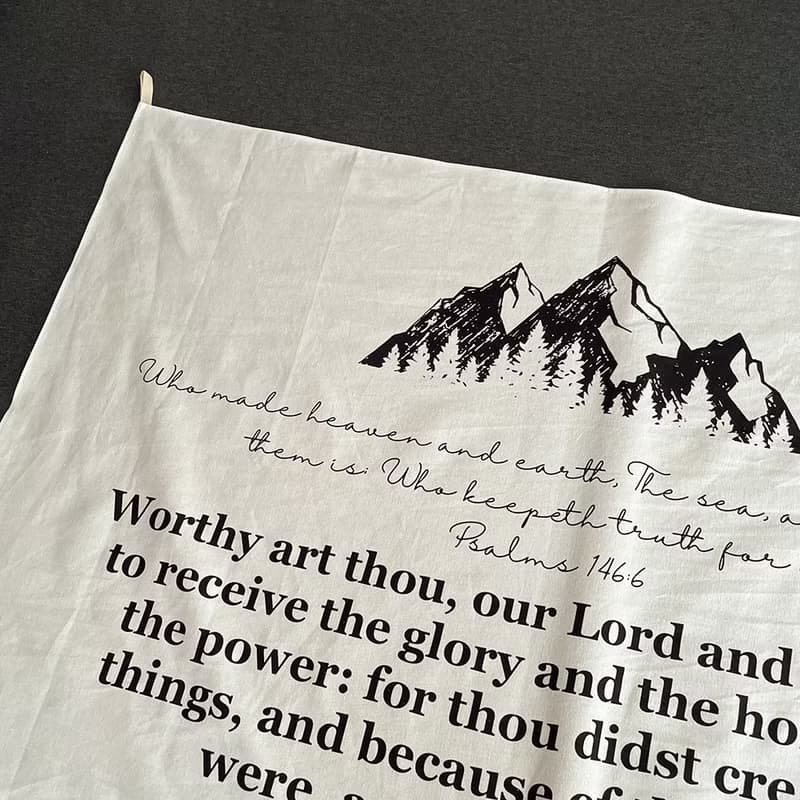 Who made heaven and earth, The sea, a
them is; Who keepeth truth for
Psalms 146:6
Worthy art thou, our Lord and
to receive the glory and the ho
the power: for thou didst cre
things, and because of
were, a